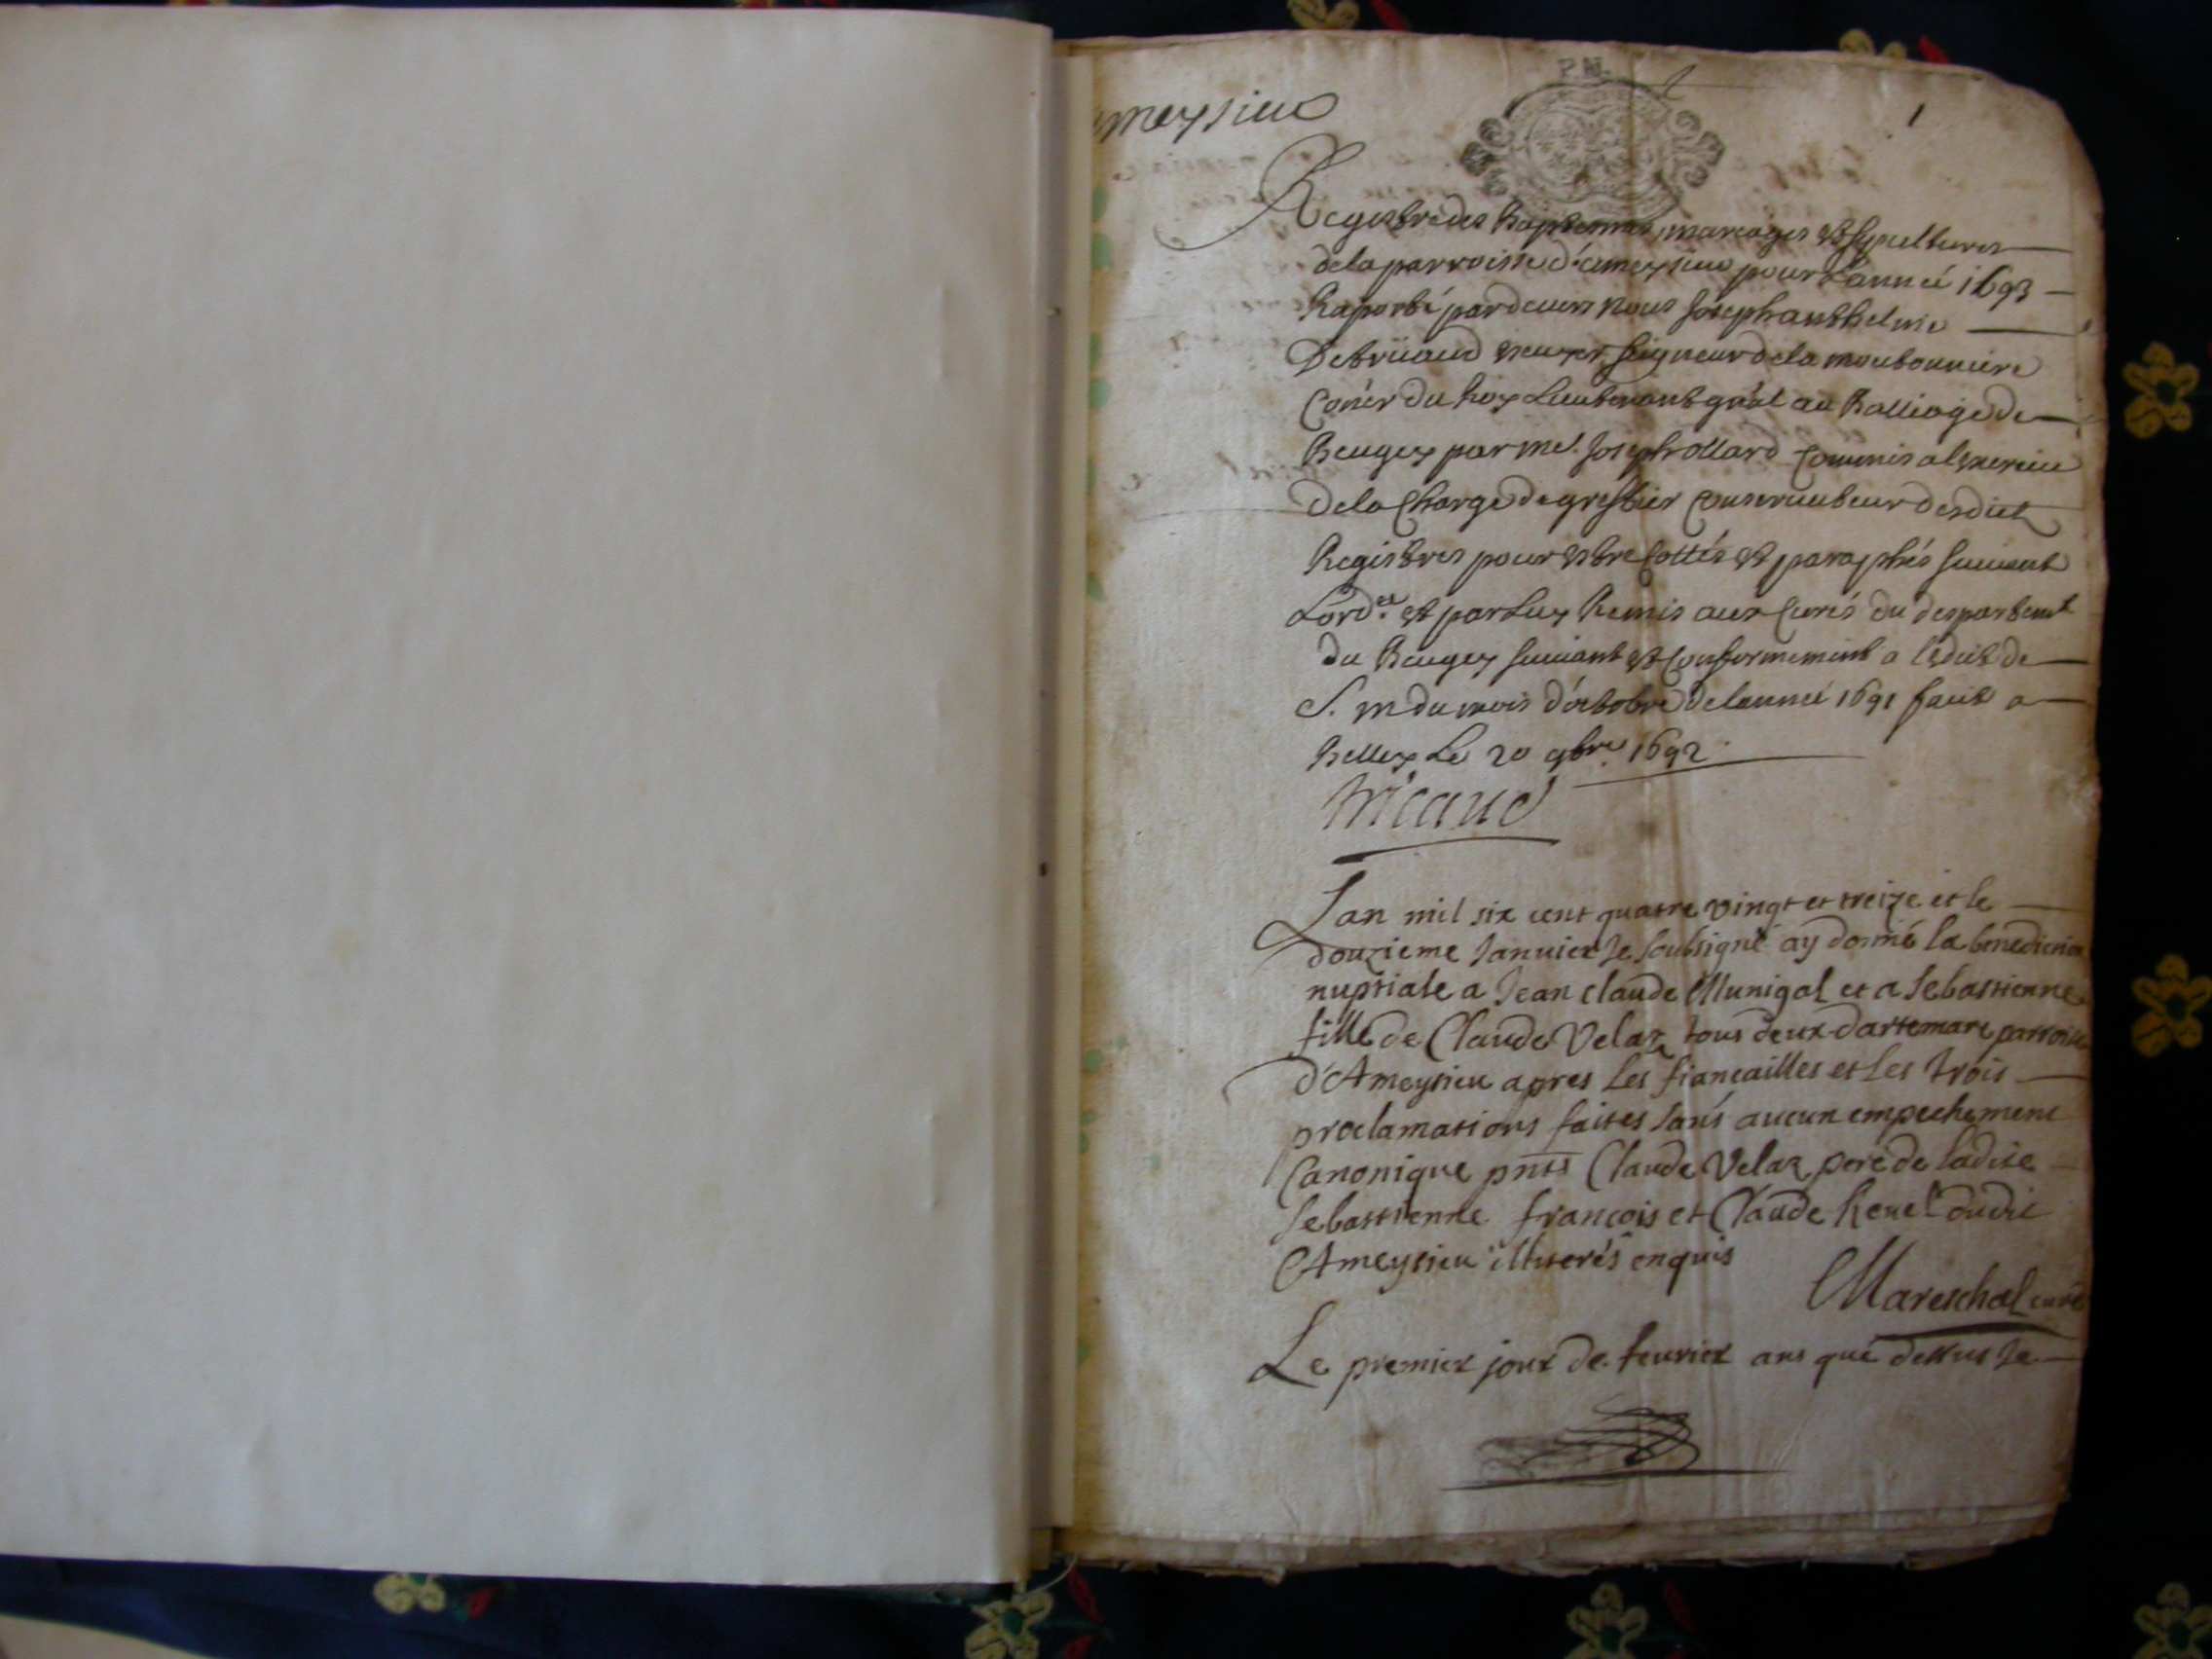 ameysieu
1
Registre des Baptesmes, mariages et sepultures
de la parroisse d'ameysieu pour l'année 1693
Raporté pardeuers nous Joseph anthelme
Debriiaud escuyer, seigneur de la moutonniere
Coner du Roy Lieutenant gnāl au Balliage de
Beugey par me. Joseph ollard commis a lexercice
de la Charge de greffier conseruateur desdictz
Registres pour estre Cottés et paraphés suiuant
Lord.ce et par Luy Remis aux Curés du despartemt
du Beugey suiuant et Conformement a ledict de
S. m du mois d'octobre de lannée 1691 faict a
Belley Le 20 9bre. 1692.
Lan mil six cent quatre vingt et treize et le
douzieme Januier Je soubsigné ay donné la benediction
nuptiale a Jean claude Munigal et a Sebastienne
fille de Claude Velaz tous deux dartemare parroisse
d'Ameysieu apres les fiancailles et les trois
proclamations faites sans aucun empechement
Canonique pnts Claude Velaz pere de ladite
Sebastienne francois et Claude Reuel dudit
Ameysieu illiterés enquis
Mareschal curé
Le premier jour de feurier ans que dessus Je